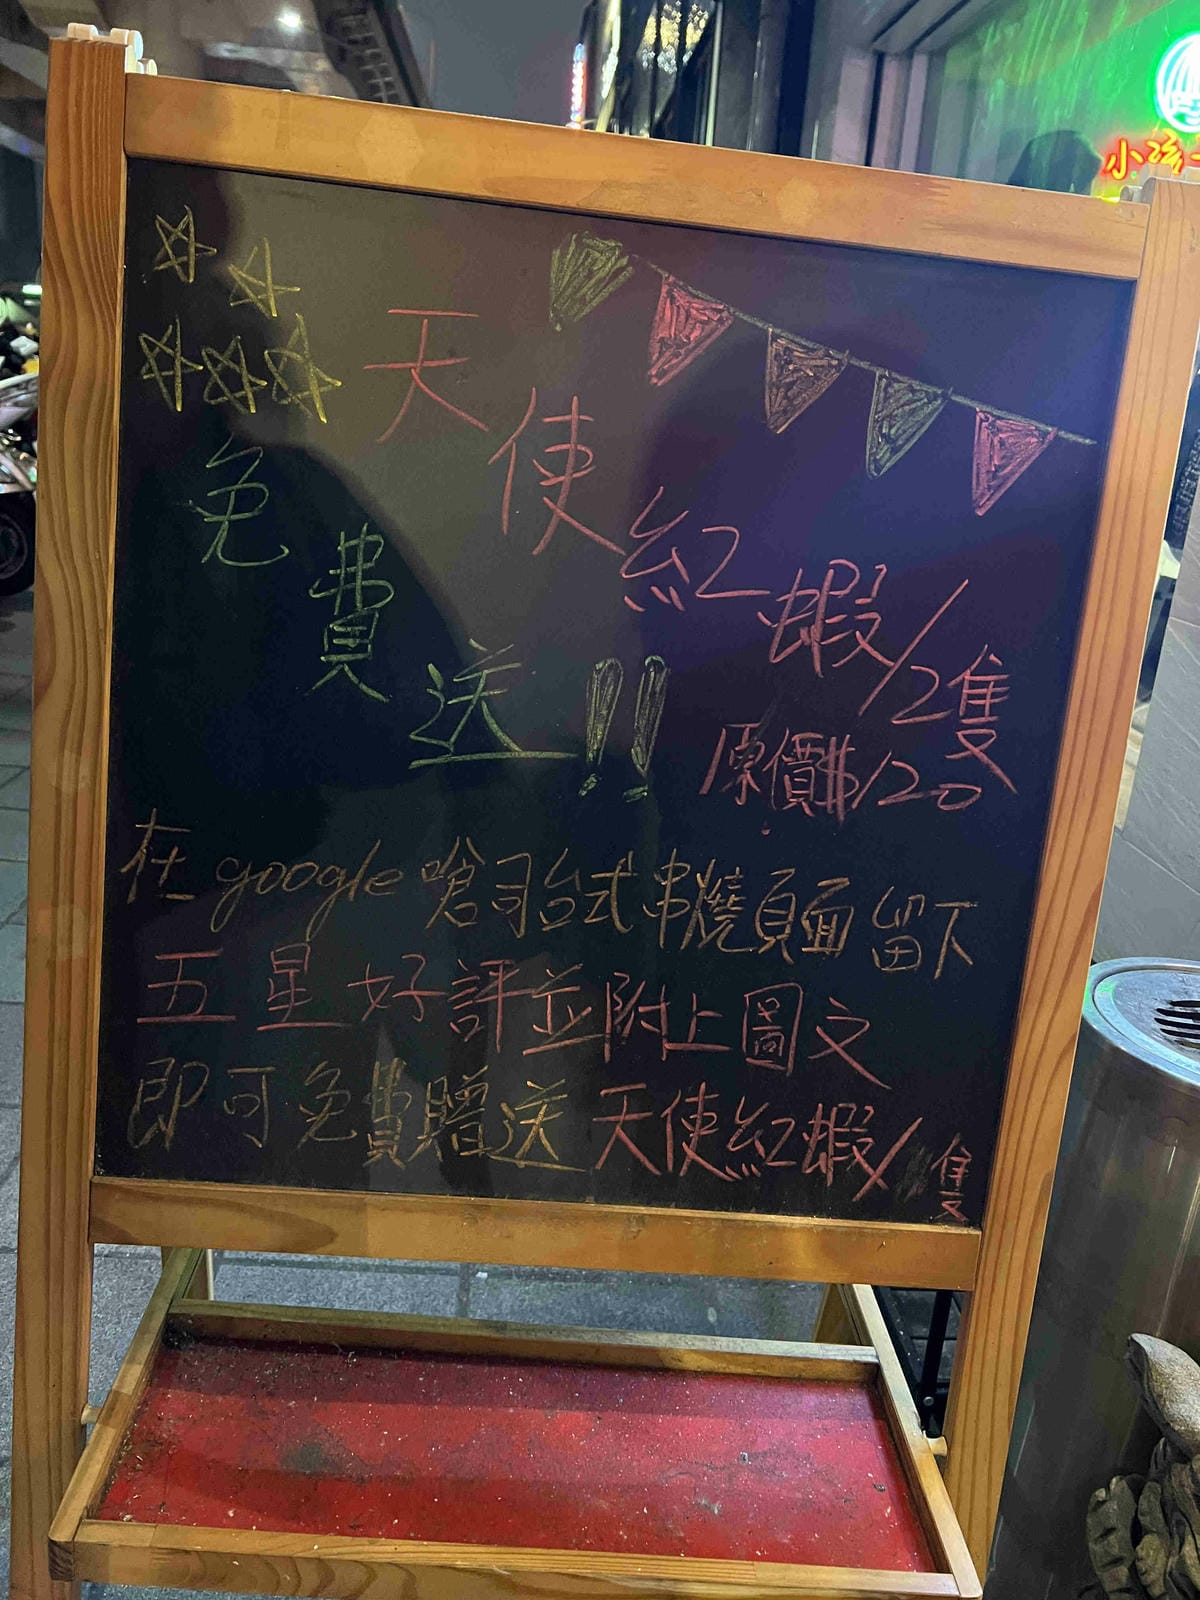 小孩
天使紅蝦/2隻
免費送!!
原價$120
在google嗆司台式串燒頁面留下
五星好評並附上圖文
即可免費贈送天使紅蝦/隻